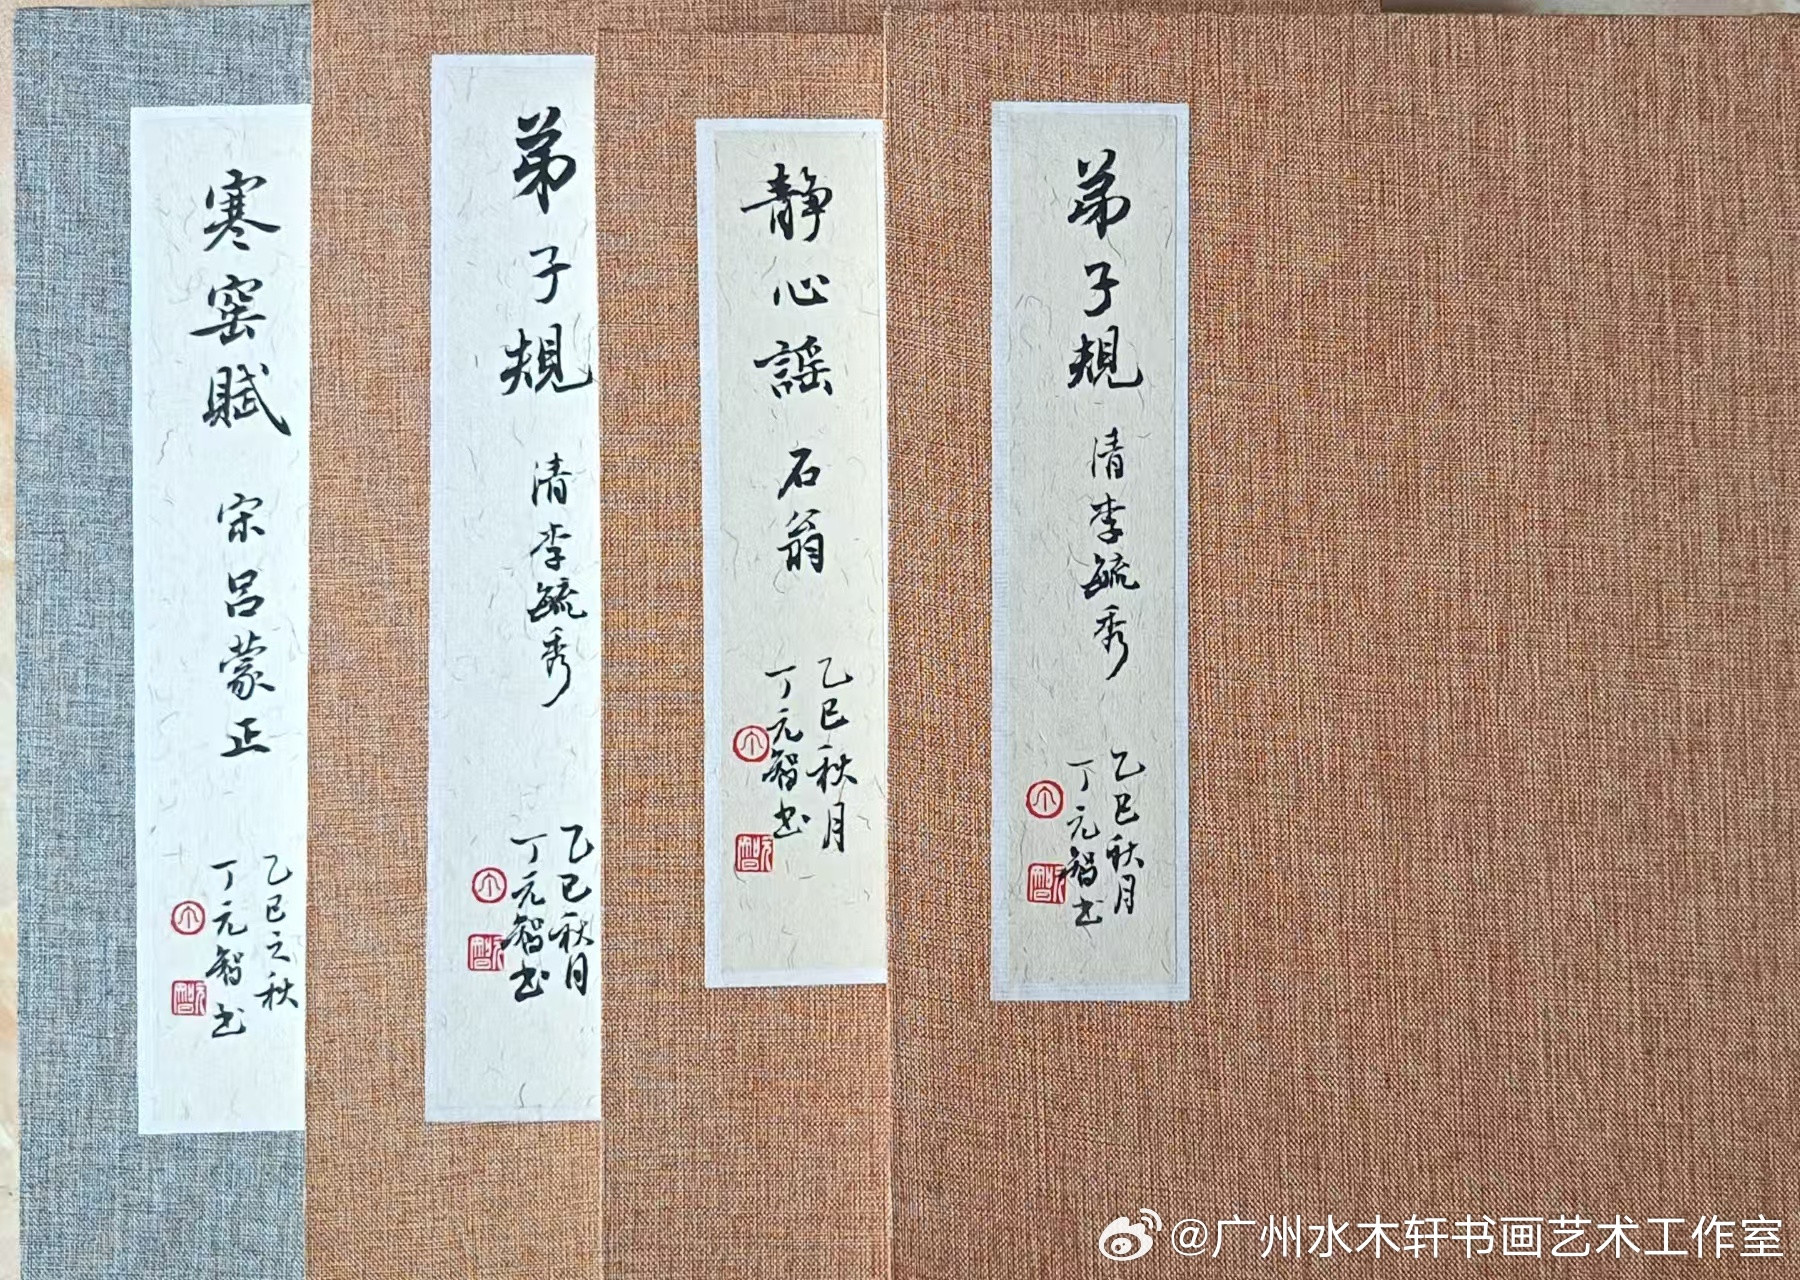 寒窑赋 宋 吕蒙正
乙巳之秋
丁元智书
弟子规 清 李毓秀
乙巳秋月
丁元智书
静心謡 石翁
乙巳秋月
丁元智书
弟子规 清 李毓秀
乙巳秋月
丁元智书
@广州水木轩书画艺术工作室